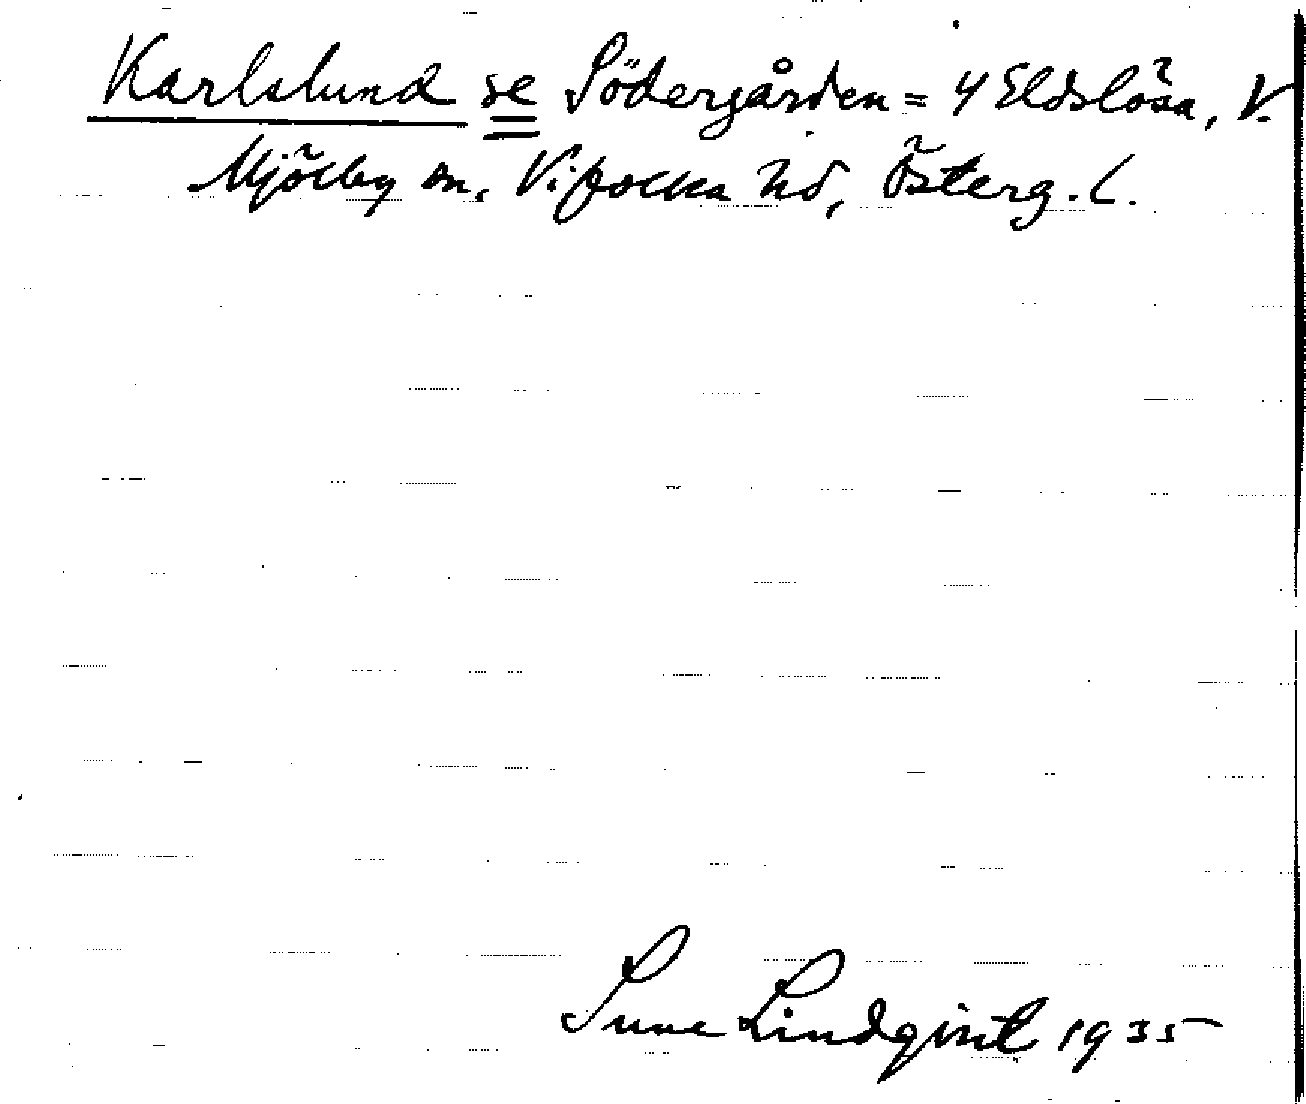 Karlslund se Södergården = 4 Eldslösa, V.
Mjölby sn, Vifolka hd, Österg. l.
Sune Lindqvist 1935